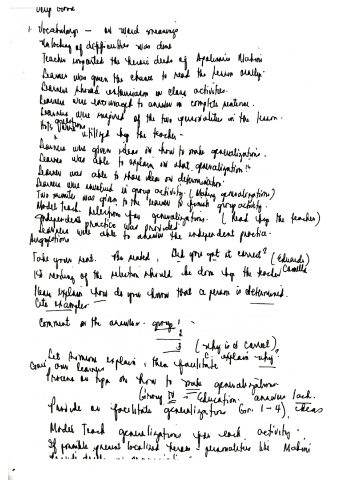 + Vocabulary - on word meanings
Unlocking of difficulties was done
Teacher imparted the heroic deeds of Apolinario Mabini
Learner was given the chance to read the lesson orally.
Learners showed enthusiasm in class activities.
Learners were encouraged to answer in complete sentences.
Learners were inquired of the two generalities in the lesson.
questions utilized by the teacher -
Learners were given ideas on how to make generalizations.
Learner was able to explain on what generalization is
Learner was able to share idea on determination
Learners were involved in group activity (Making generalization)
Two minutes was given to the learner to group activity.
Model Teach selection for generalizations. (Read by the teacher)
Independent practice was provided
Learners were able to answer the independent practice.
Take your seat. Be seated, Did you get it correct? (Eduardo)
1st reading of the selection should be done by the teacher Camille
Please explain how do you know that a person is determined.
Cite examples
Comment on the answers - group 1
2
3 (why is it correct)
explain why?
Let someone explain, then facilitate
our learner
Process on tips on how to make generalizations
Group IV - Education answers lack ideas
Provide or facilitate generalization (Gr. 1-4)
Model Teach generalization for each activity.
If possible present localized heroes personalities like Mabini